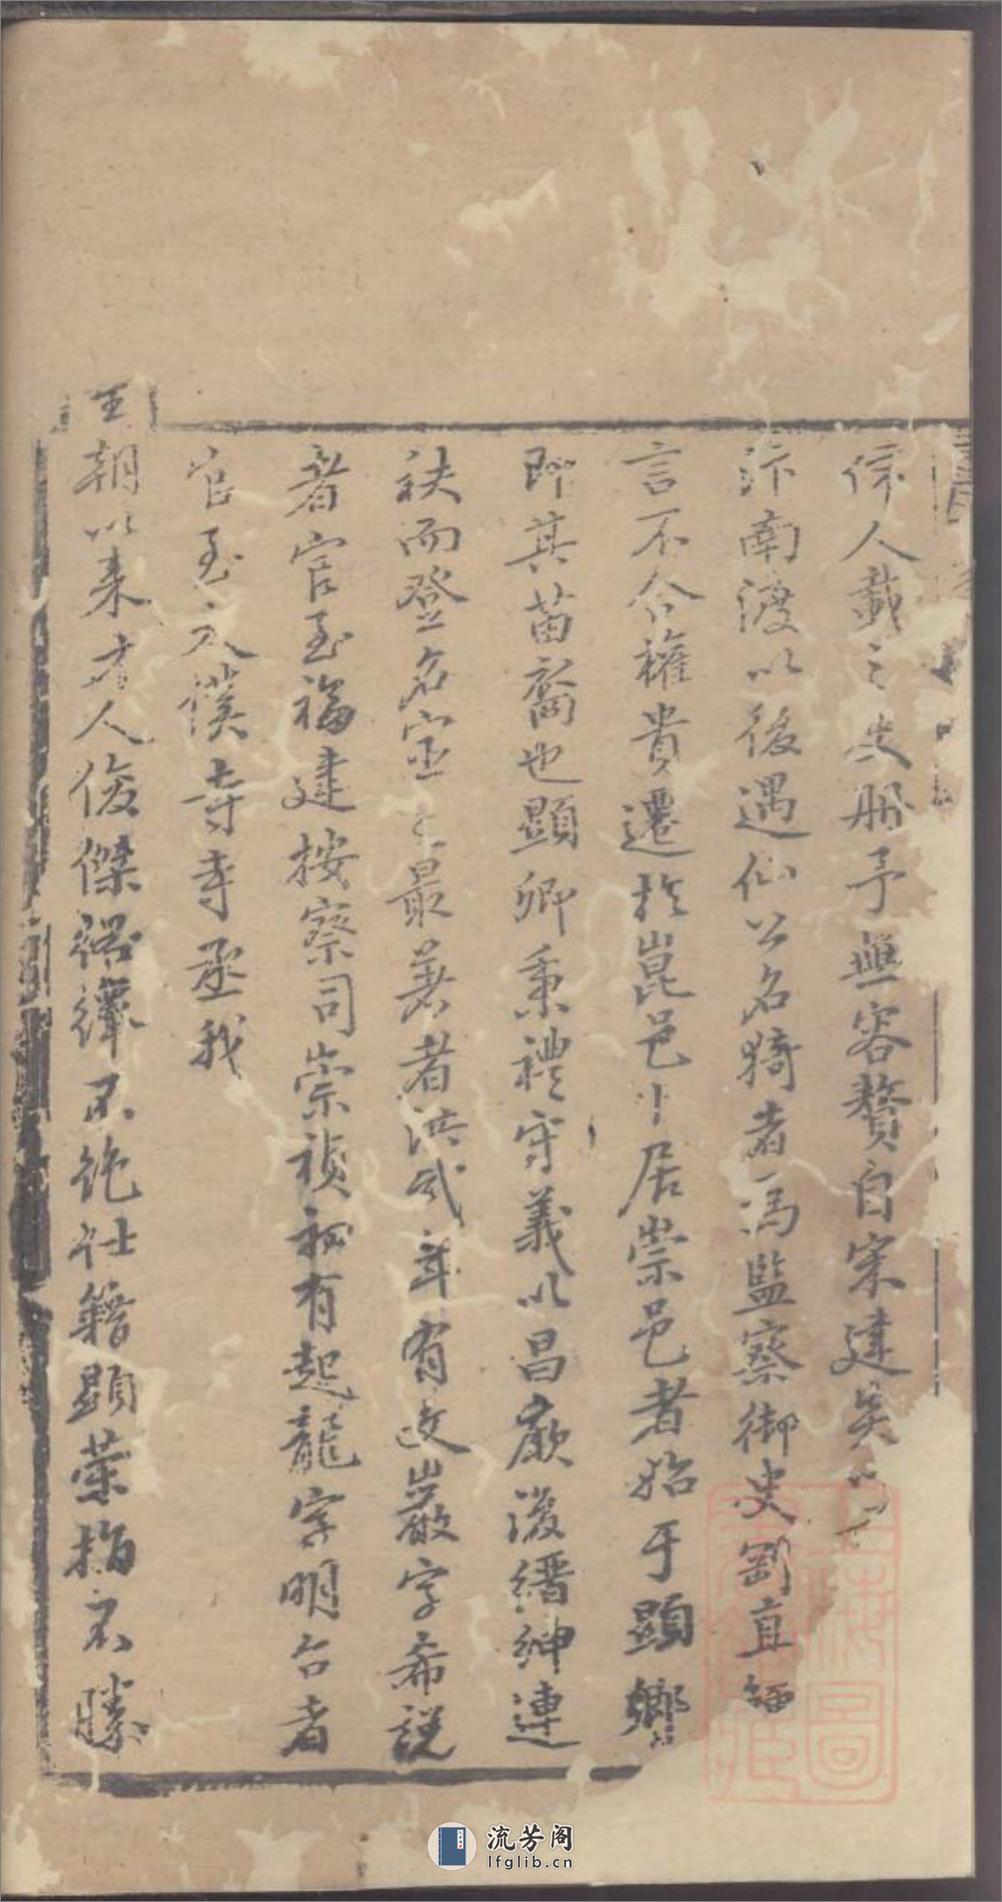 人載之史册予無容贅自宋建炎
汴南渡以後遇仙公名猗者為監察御史剛直
言不合權貴遷於崑邑卜居崇邑者始于顯卿
即其苗裔也顯卿秉禮守義以昌厥後縉紳連
袂而登名宦之最著者洪武年有文巖字希說
者官至福建按察司崇禎初有起龍字明台者
官至太僕寺寺丞我
王朝以來才人俊傑絡繹不絕仕籍顯榮指不勝
流芳阁
lfglib.cn